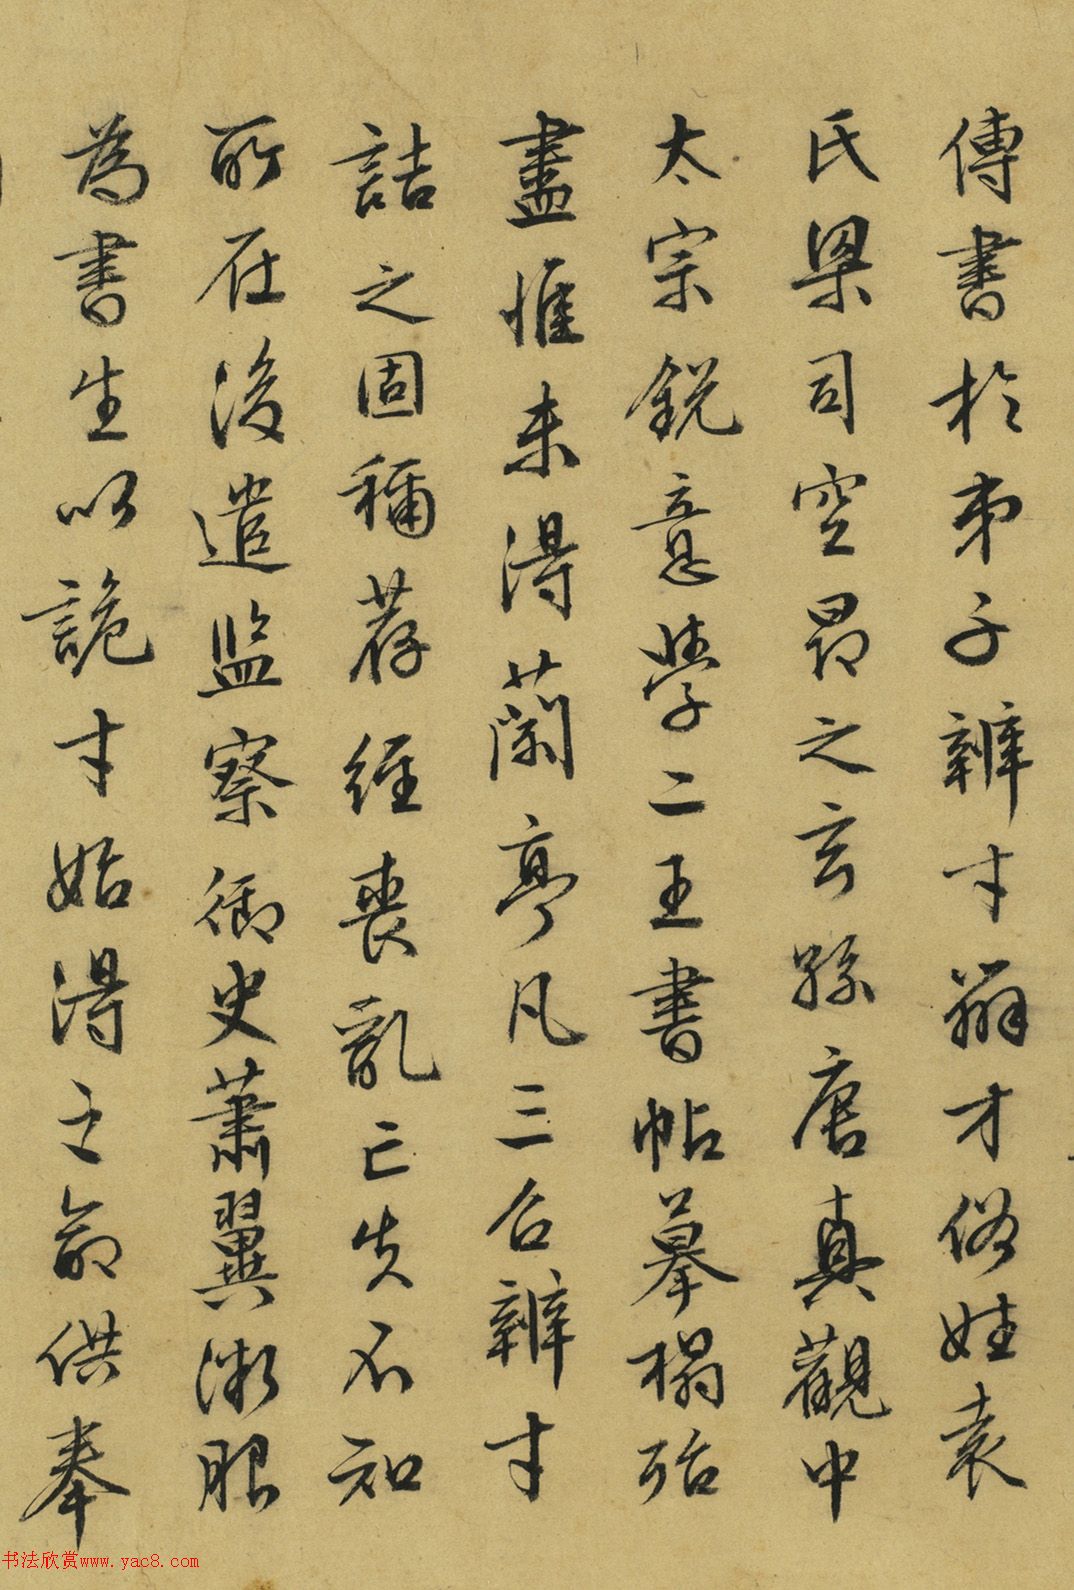 傳書於弟子辨才辯才俗姓袁
氏梁司空昂之玄孫唐真觀中
太宗銳意學二王書帖摹榻殆
盡惟未得蘭亭凡三召辨才
詰之固稱荐經喪亂亡失不知
所在後遣監察御史蕭翼微服
為書生以詭才始得之命供奉
书法欣赏www.yac8.com